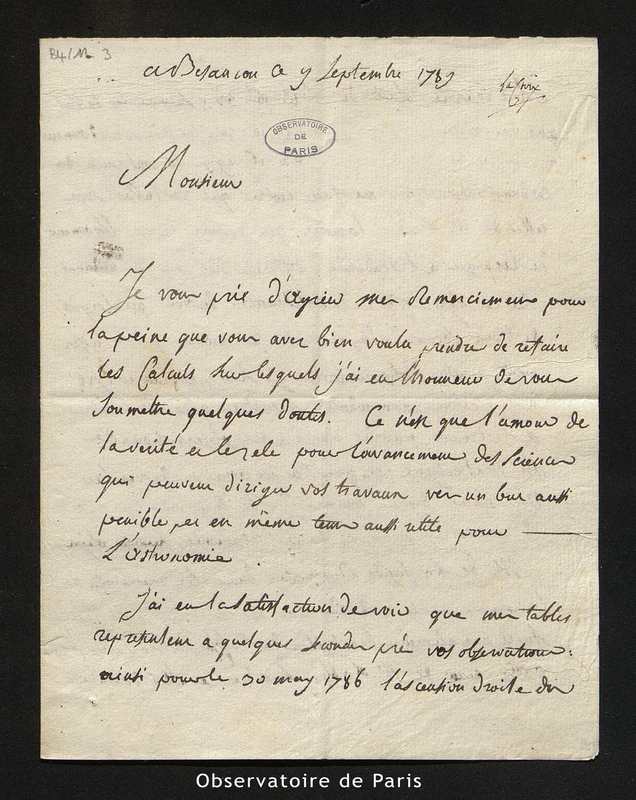 B4/12 3
a Besancon ce 9 Septembre 1789
Lacroix
OBSERVATOIRE
DE
PARIS
Monsieur
Je vous prie d'agréer mes Remerciemens pour
la peine que vous avez bien voulu prendre de refaire
les Calculs sur lesquels j'ai eu l'honneur de vous
soumettre quelques doutes. Ce n'est que l'amour de
la verité et le zele pour l'avancement des Sciences
qui peuvent diriger vos travaux vers un but aussi
penible, et en même tems aussi utile pour
L'astronomie.
J'ai eu la satisfaction de voir que mes tables
representent a quelques secondes près vos observations:
ainsi pour le 30 may 1786 l'ascension droite du
Observatoire de Paris